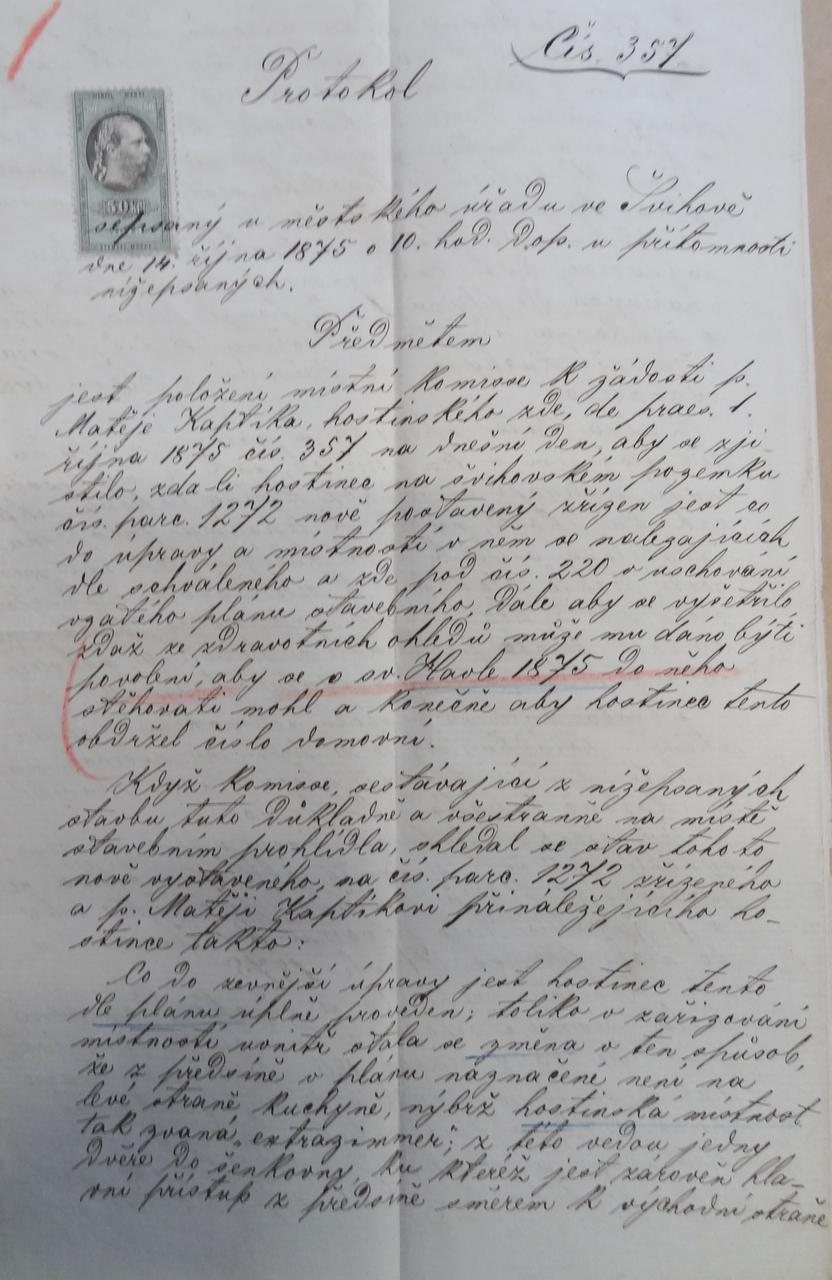 Čís. 357
Protokol
50 KR
sepsaný u městského úřadu ve Švihově
dne 14. října 1875 o 10. hod. dop. u přítomnosti
nížepsaných.
Předmětem
jest položení místní komisse k žádosti p.
Matěje Kaptíka, hostinského zde, de praes. 1.
října 1875 čís. 357 na dnešní den, aby se zji-
stilo, zda-li hostinec na švihovském pozemku
čís. parc. 1272 nově postavený zřízen jest co
do úpravy a místností v něm se nalezajících
dle schváleného a zde pod čís. 220 v uschování
vzatého plánu stavebního. Dále aby se vyšetřilo
zdaž ze zdravotních ohledů může mu dáno býti
povolení, aby se o sv. Havle 1875 do něho
stěhovati mohl a konečně aby hostinec tento
obdržel číslo domovní.
Když komisse, sestávající z nížepsaných
stavbu tuto důkladně a všestranně na místě
stavebním prohlídla, shledal se stav tohoto
nově vystaveného, na čís. parc. 1272 zřízeného
a p. Matěji Kaptíkovi přináležejícího ho-
stince takto:
Co do zevnější úpravy jest hostinec tento
dle plánu úplně proveden; toliko v zařizování
místností uvnitř stala se změna v ten spůsob,
že z předsíně v plánu naznačené není na
levé straně kuchyně, nýbrž hostinská místnost
tak zvaná „extrazimmer"; z této vedou jedny
dvéře do šenkovny, ku kteréž jest zároveň hla-
vní přístup z předsíně směrem k východní straně